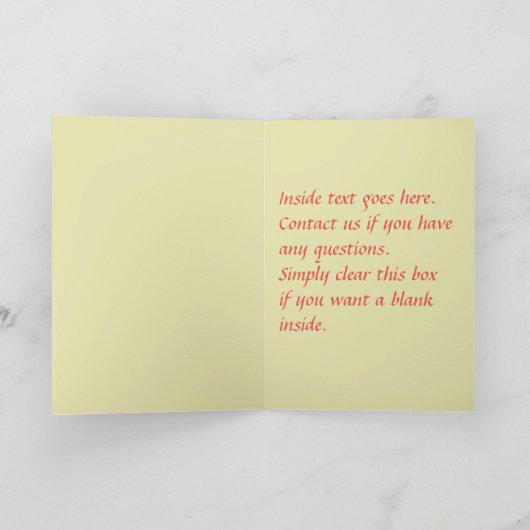 Inside text goes here.
Contact us if you have
any questions.
Simply clear this box
if you want a blank
inside.